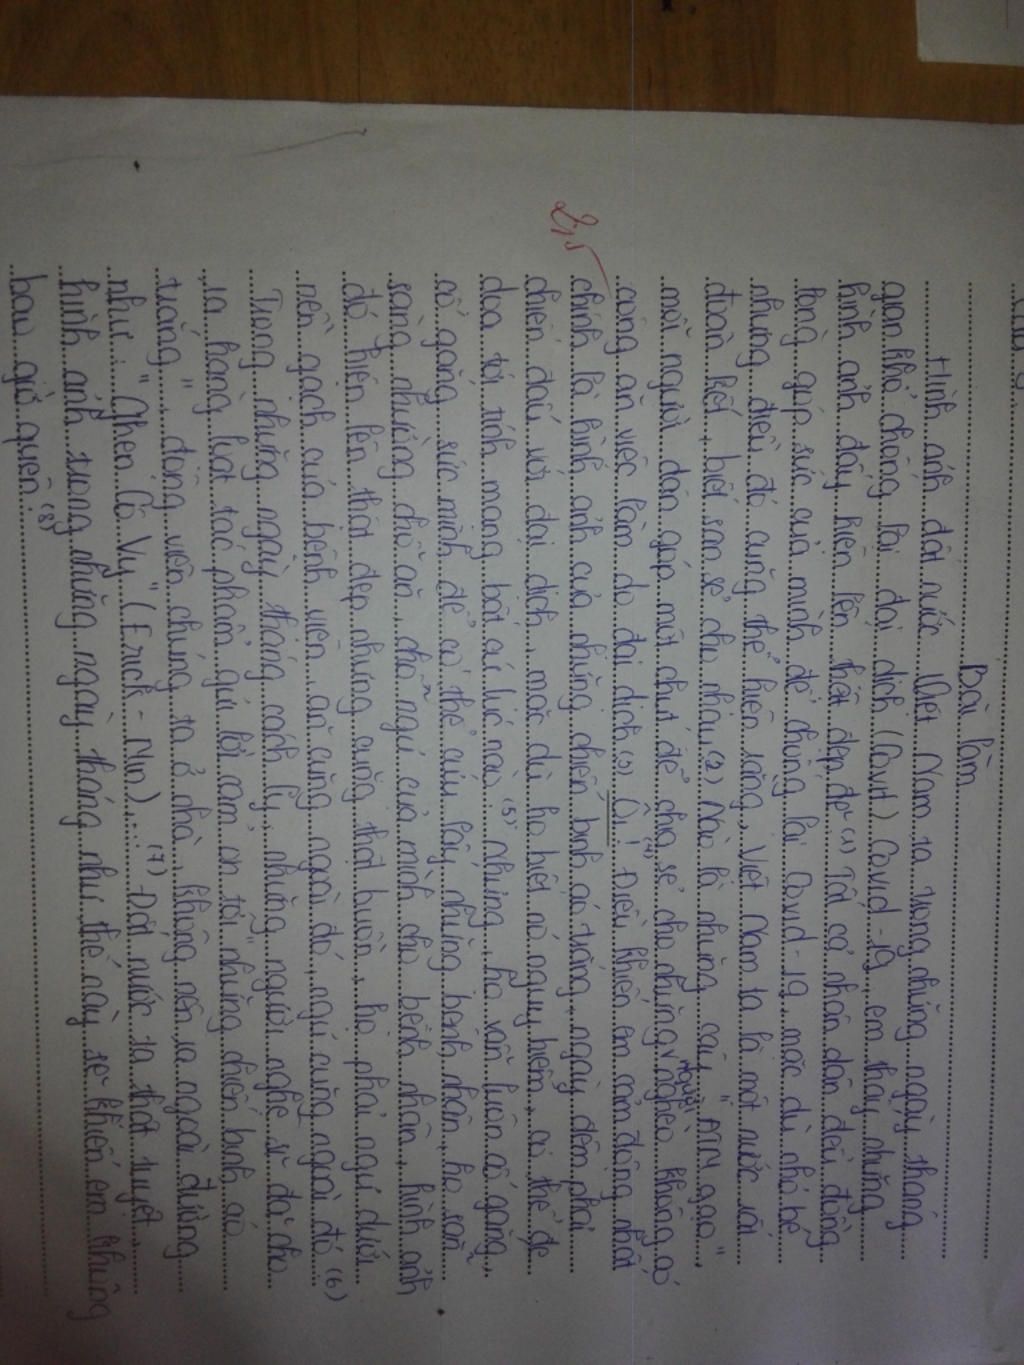 Bài làm
Hình ảnh đất nước Việt Nam ta trong những ngày tháng
gian khó chống lại đại dịch (Covit) Covid-19, em thấy những
hình ảnh đấy hiện lên thật đẹp đẽ (1) Tất cả nhân dân đều đồng
lòng góp sức của mình để chống lại Covid-19, mặc dù nhỏ bé
nhưng điều đó cũng thể hiện rằng, Việt Nam ta là một nước rất
đoàn kết, biết san sẻ cho nhau (2) Nào là những cây "ATM gạo",
mỗi người dân góp một chút để chia sẻ cho những người nghèo không có
công ăn việc làm do đại dịch (3) Ôi! (4) Điều khiến em cảm động nhất
2,5
chính là hình ảnh của những chiến binh áo trắng, ngày đêm phải
chiến đấu với đại dịch, mặc dù họ biết nó nguy hiểm, có thể đe
dọa tới tính mạng bất cứ lúc nào (5). Nhưng, họ vẫn luôn cố gắng,
cố gắng sức mình để có thể cứu lấy những bệnh nhân, họ sẵn
sàng nhường chỗ ăn, chỗ ngủ của mình cho bệnh nhân, hình ảnh
đó hiện lên thật đẹp nhưng cũng thật buồn, họ phải ngủ dưới
nền gạch của bệnh viện, ăn cũng ngoài đó, ngủ cũng ngoài đó (6)
Trong những ngày tháng cách ly, những người nghệ sĩ đã cho
ra hàng loạt tác phẩm gửi lời cảm ơn tới "những chiến binh áo
trắng", động viên chúng ta ở nhà, không nên ra ngoài đường
như: "Ghen Cô Vy" (Erick - Min),... (7) Đất nước ta thật tuyệt,
hình ảnh trong những ngày tháng như thế này sẽ khiến em không
bao giờ quên. (8)